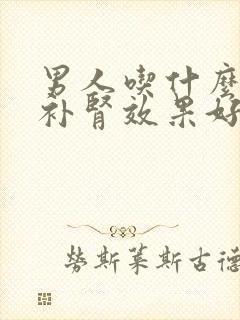 男人喫什麼
补腎效果好
勞斯萊斯古德